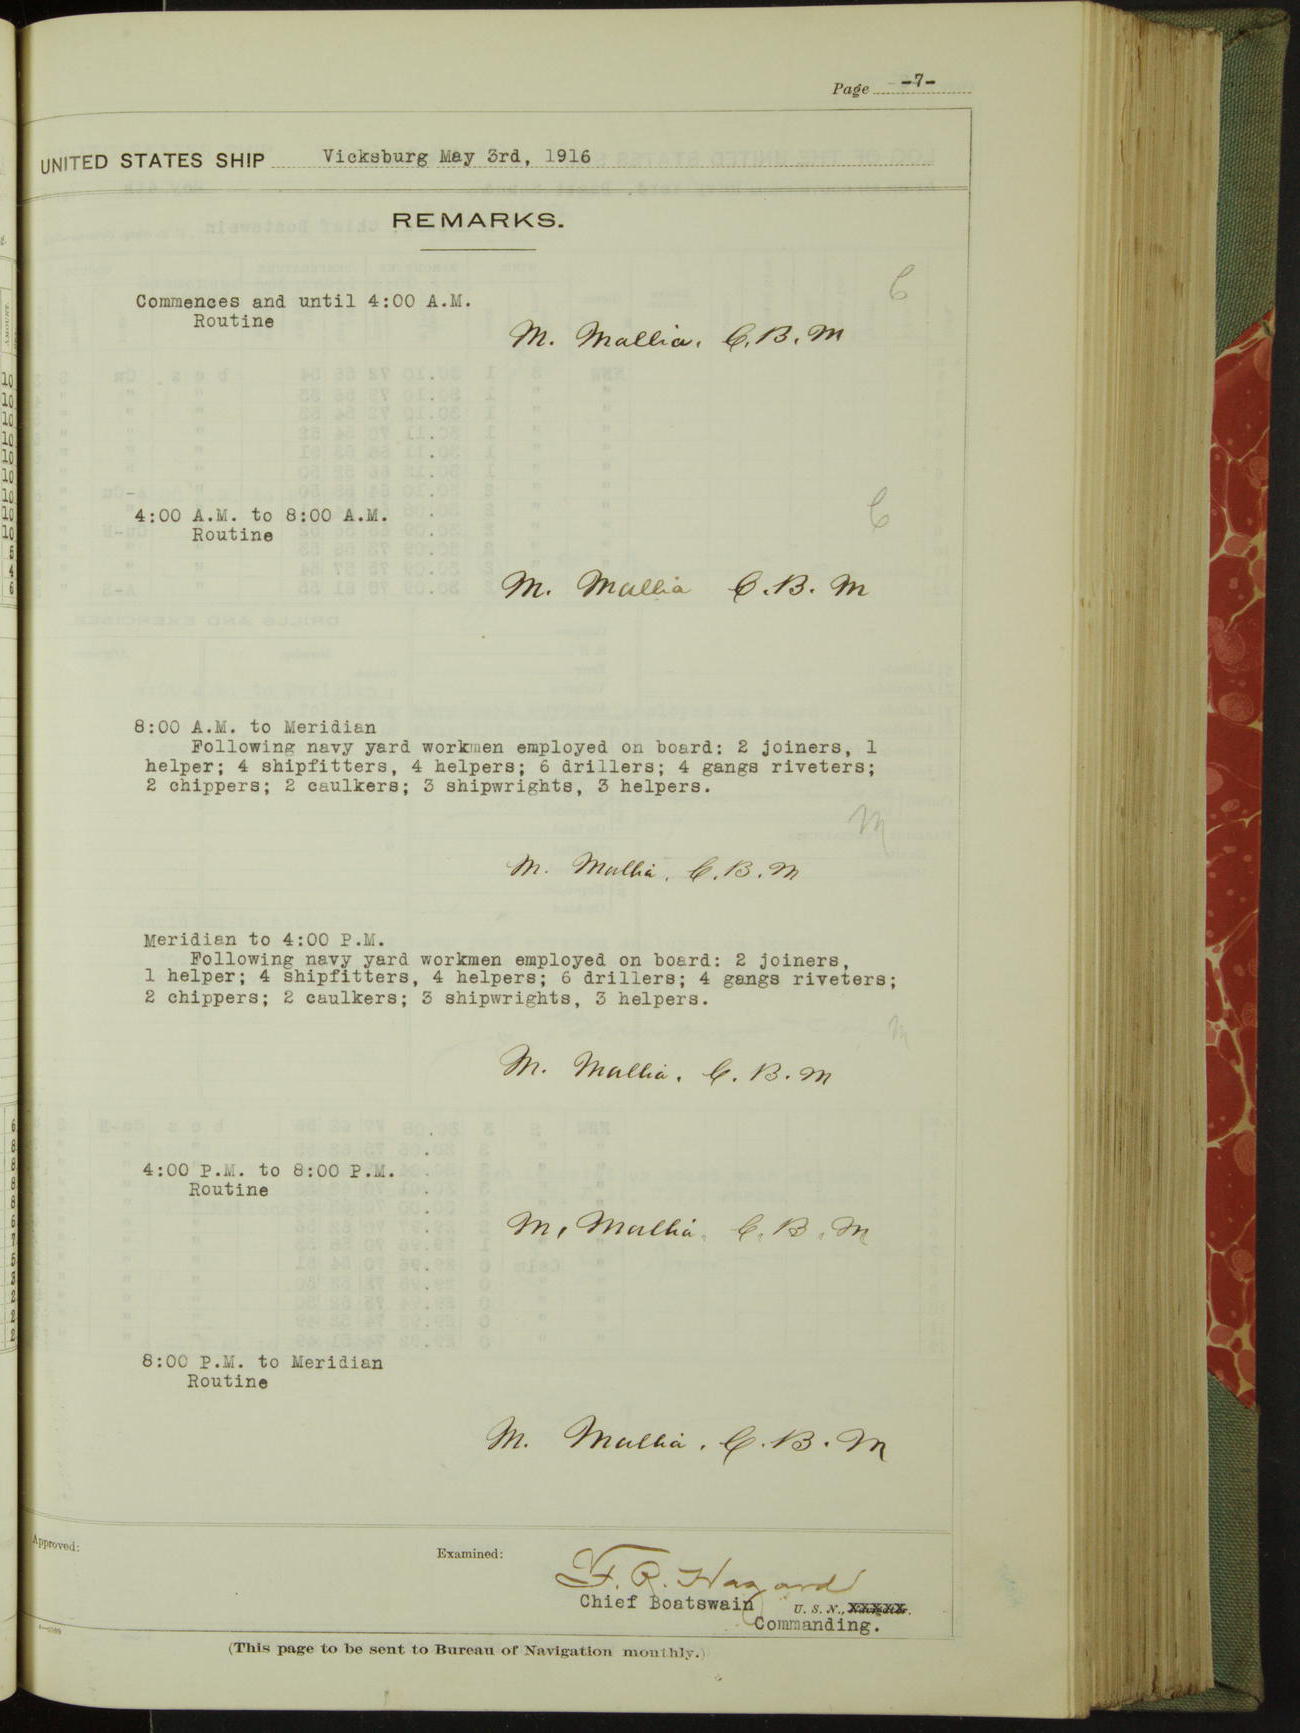 Page -7-
UNITED STATES SHIP Vicksburg May 3rd, 1916
REMARKS.
Commences and until 4:00 A.M.
Routine
C
M. Mallia, C.B.M
4:00 A.M. to 8:00 A.M.
Routine
C
M. Mallia C.B.M
8:00 A.M. to Meridian
Following navy yard workmen employed on board: 2 joiners, 1
helper; 4 shipfitters, 4 helpers; 6 drillers; 4 gangs riveters;
2 chippers; 2 caulkers; 3 shipwrights, 3 helpers.
M
M. Mallia, C.B.M
Meridian to 4:00 P.M.
Following navy yard workmen employed on board: 2 joiners,
1 helper; 4 shipfitters, 4 helpers; 6 drillers; 4 gangs riveters;
2 chippers; 2 caulkers; 3 shipwrights, 3 helpers.
M
M. Mallia, C.B.M
4:00 P.M. to 8:00 P.M.
Routine
M. Mallia, C.B.M
8:00 P.M. to Meridian
Routine
M. Mallia, C.B.M
Approved:
Examined:
F. R. Hazard
Chief Boatswain U. S. N.,
Commanding.
(This page to be sent to Bureau of Navigation monthly.)